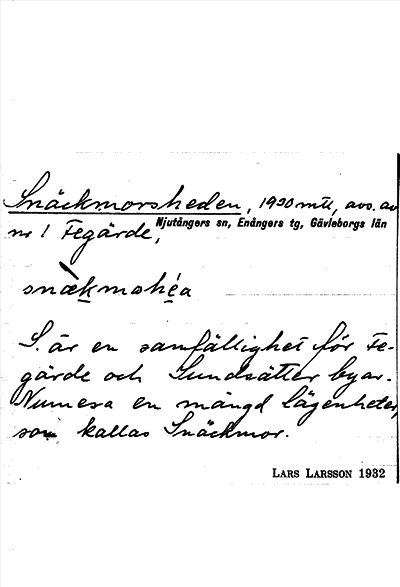 Snäckmorsheden, 1930 mtl, avs. av
Njutångers sn, Enångers tg, Gävleborgs län
nr 1 Fegärde,
snækmohéa
S. är en samfällighet för Fe-
gärde och Sundsätter byar.
Numera en mängd lägenheter,
som kallas Snäckmor.
LARS LARSSON 1932